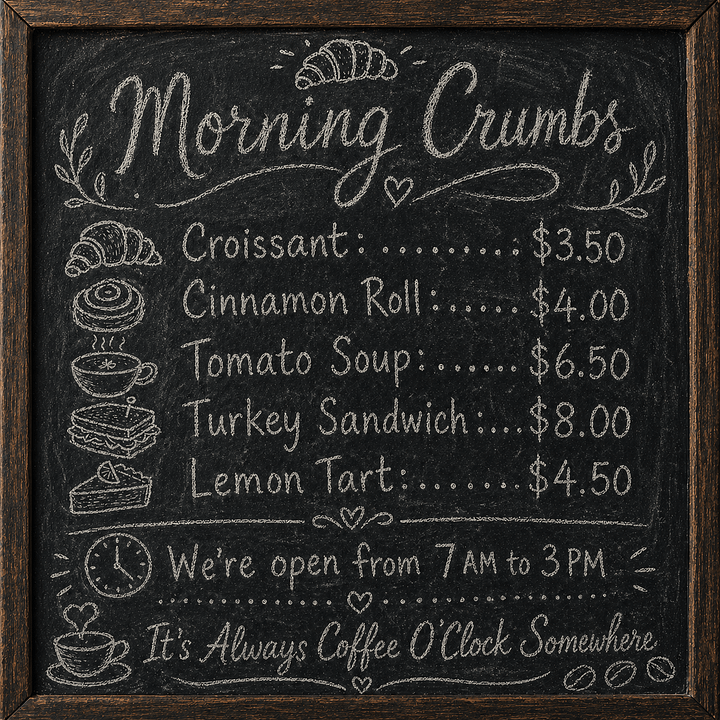 Morning Crumbs
Croissant: ......... $3.50
Cinnamon Roll: ...... $4.00
Tomato Soup: ...... $6.50
Turkey Sandwich: ... $8.00
Lemon Tart: ....... $4.50
We're open from 7 AM to 3 PM
It's Always Coffee O'Clock Somewhere